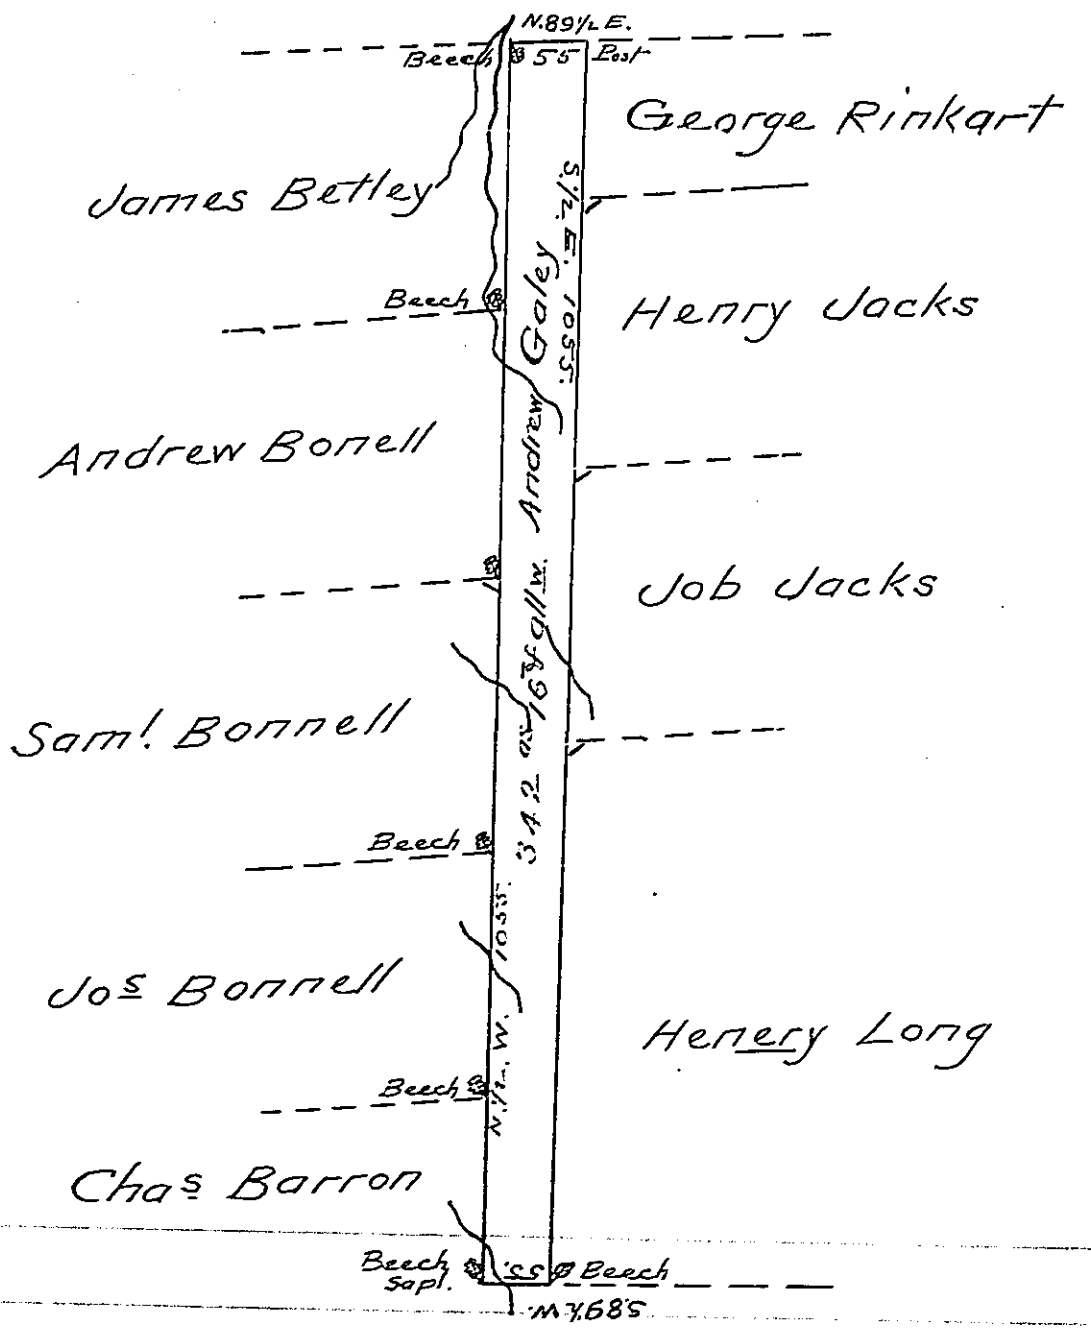 N.89½E.
Beech 55 Post
George Rinkart
James Betley
S.½.E. 1055.
Beech
Henry Jacks
Andrew Galey
Andrew Bonell
Job Jacks
342 as 16 Ps & allw.
Saml. Bonnell
Beech
N.½.W. 1055.
Jos Bonnell
Henery Long
Beech
Chas Barron
Beech Sapl.
55.
Beech
S.89½W.